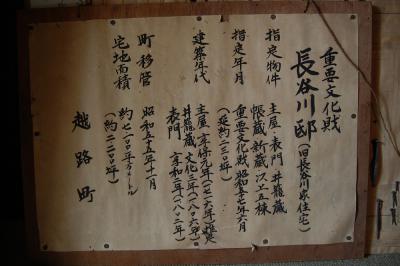 重要文化財
長谷川邸(旧長谷川家住宅)
指定物件 主屋・表門 井籠蔵
帳蔵 新蔵 以上五棟
指定年月 重要文化財 昭和五十七年六月
(延約二三〇坪)
建築年代 主屋 享保元年(一七一六年)
井籠蔵 文化三年(一八〇六年)
表門 享和二年(一八〇二年)
町移管 昭和五十五年十一月
宅地面積 約七二〇〇平方メートル
(約二二〇〇坪)
越路町